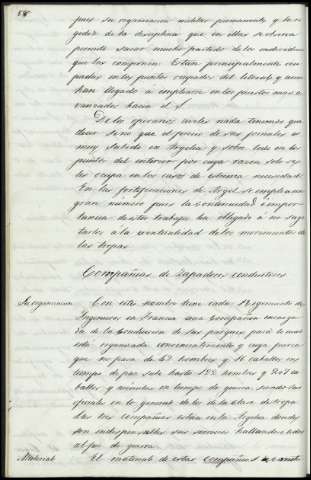 58
pues su organizacion militar permanente y la ri
gidez de la disciplina que en ellas se observa
permite sacar mucho partido de los individuos
que las componen. Están principalmente ocu
padas en los puntos ocupados del litoral y aun
han llegado á emplearse en los puestos mas a
vanzados hacia el S.
De los operarios civiles nada tenemos que
decir sino que el precio de sus jornales es
muy subido en Argelia y sobre todo en los
puntos del interior por cuya razon solo se
les ocupa en los casos de estrema necesidad.
En las fortificaciones de Argel se emplea un
gran número pues la continuidad é impor-
tancia de estos trabajos ha obligado á no suge
tarlos á la eventualidad de los movimientos de
las tropas.
Compañias de Zapadores conductores
Su organizacion Con este nombre tiene cada Regimiento de
Ingenieros en Francia una compañia encarga
da de la conduccion de sus parques para lo cual
está organizada convenientemente y cuya fuerza
que no pasa de hombres y caballos en
tiempo de paz sube hasta hombres y ca
ballos y mulos en tiempo de guerra, siendo los
oficiales en lo general de los de la clase de tropa.
Las tres compañias estan en la Argelia donde
son indispensables sus servicios hallandose todas
al pie de guerra.
Material El material de estas compañias se